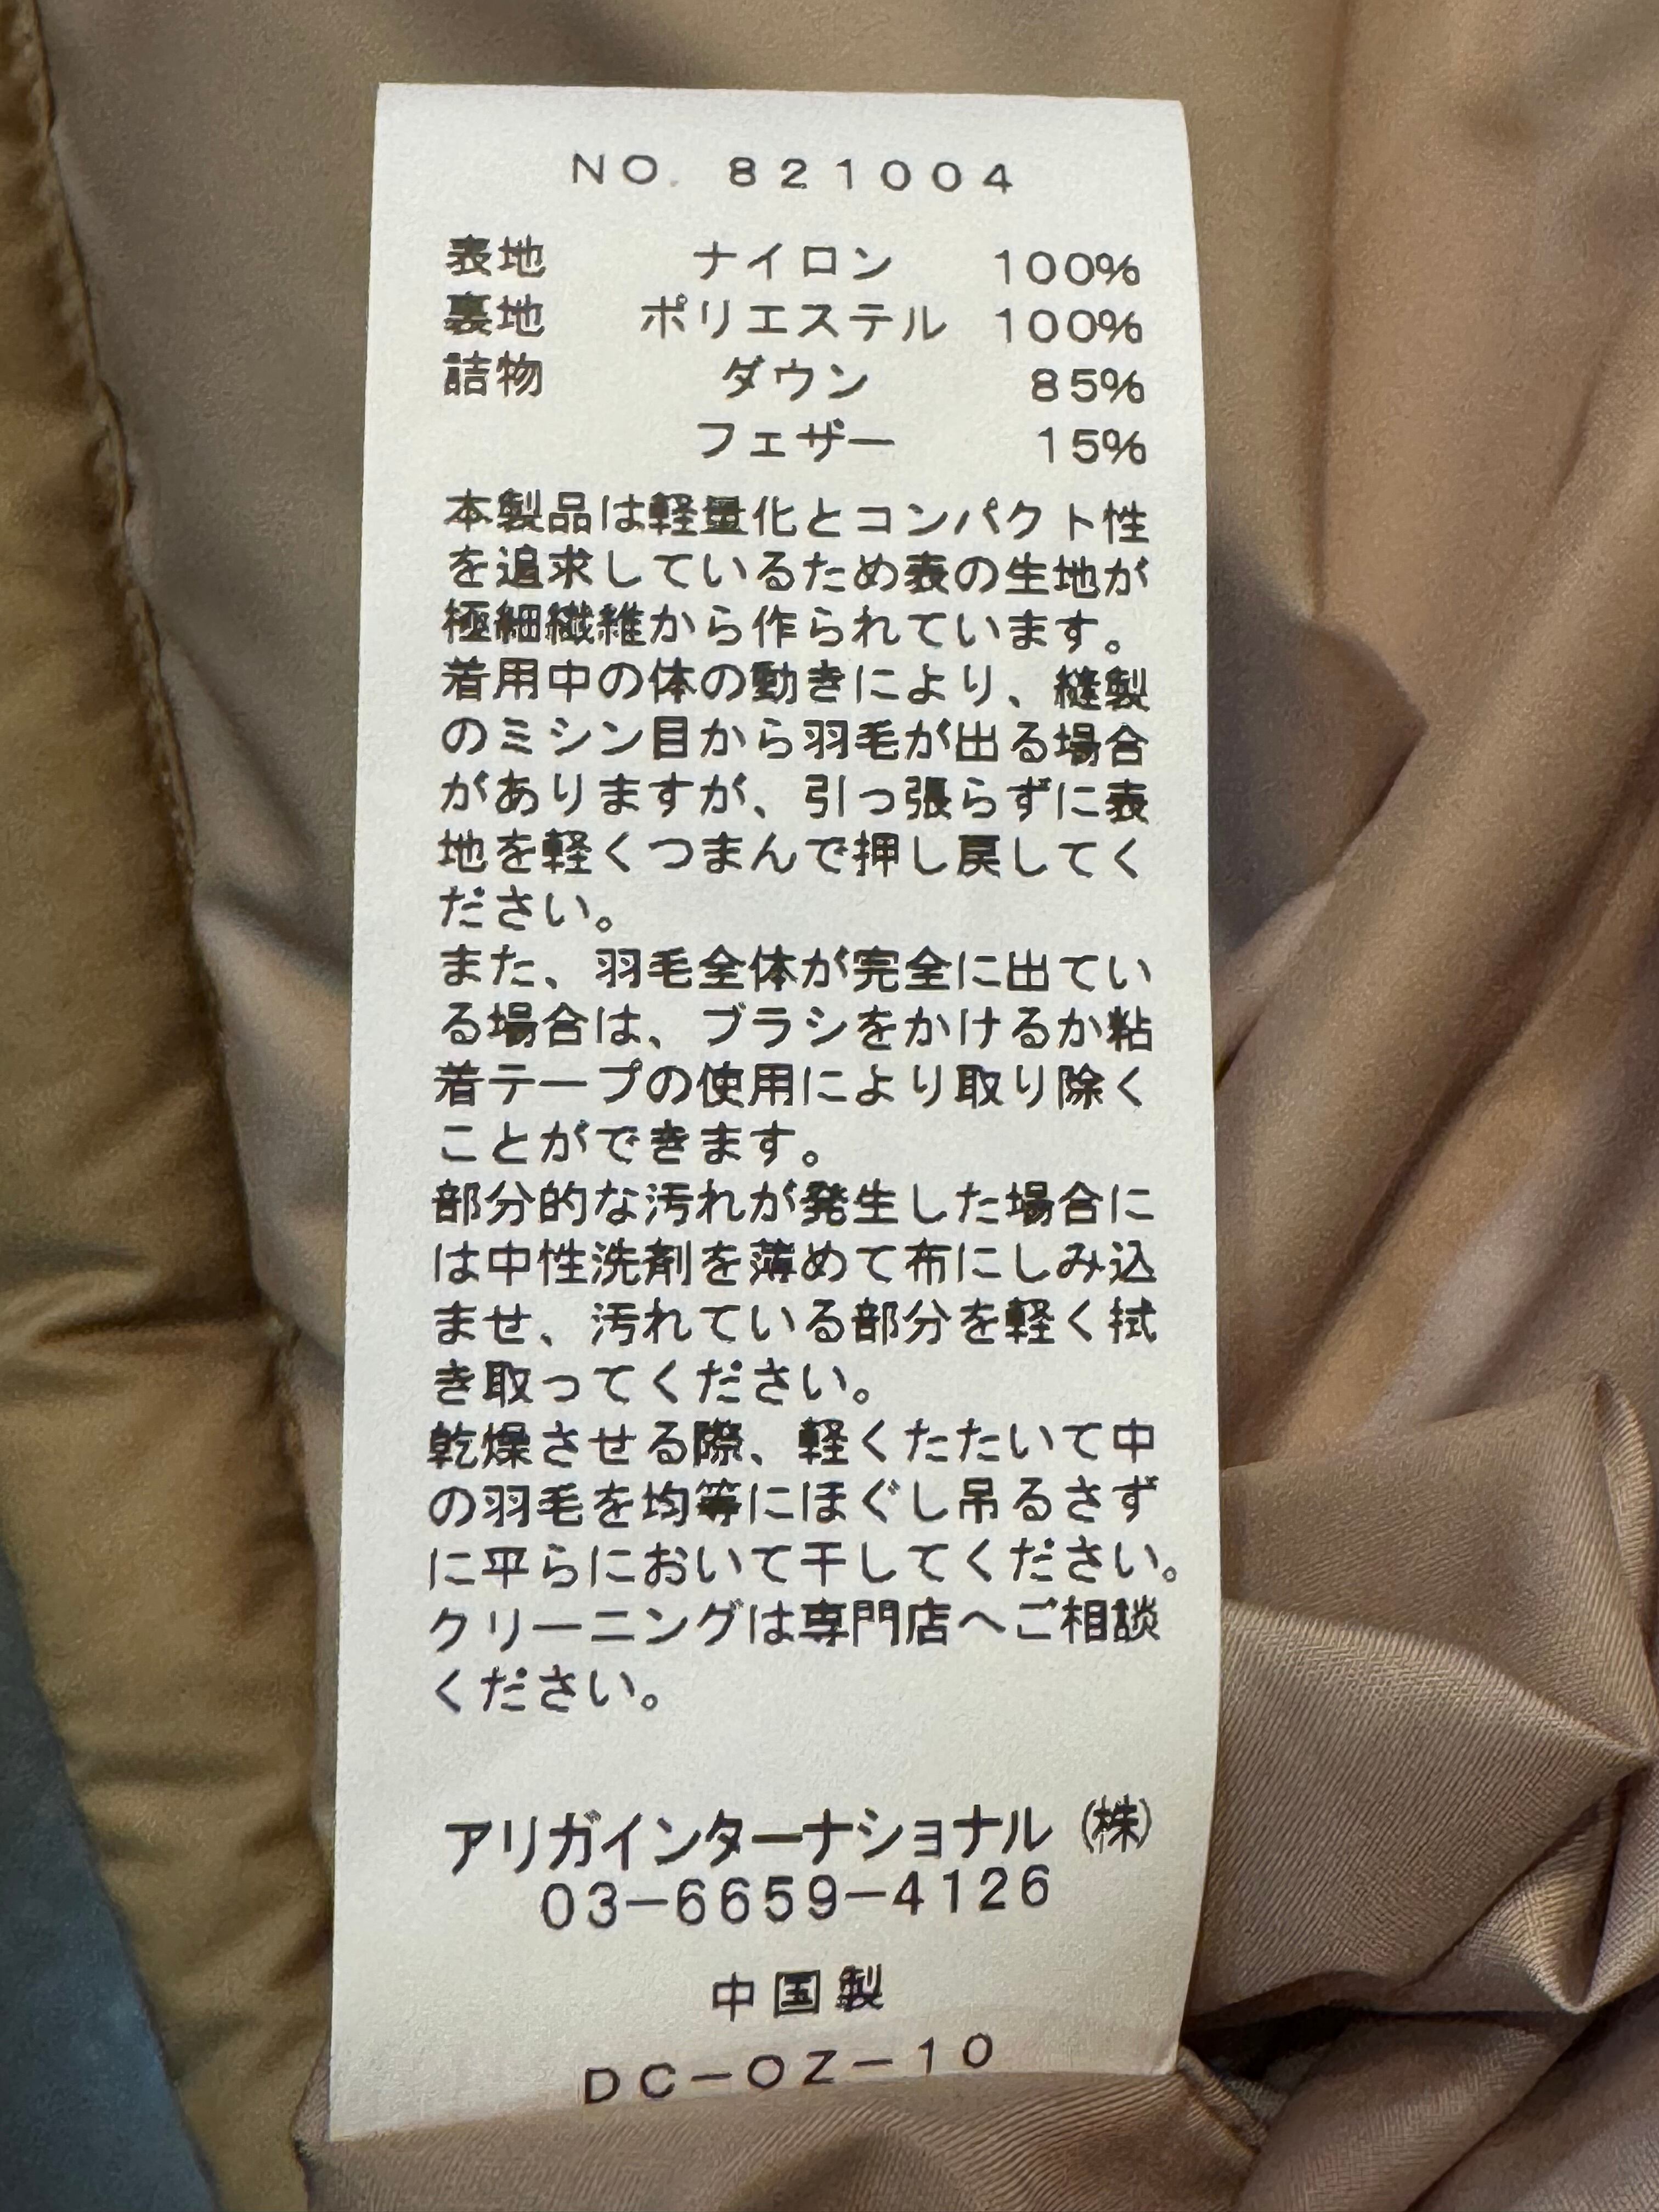 NO. 821004
表地 ナイロン 100%
裏地 ポリエステル 100%
詰物 ダウン 85%
フェザー 15%
本製品は軽量化とコンパクト性
を追求しているため表の生地が
極細繊維から作られています。
着用中の体の動きにより、縫製
のミシン目から羽毛が出る場合
がありますが、引っ張らずに表
地を軽くつまんで押し戻してく
ださい。
また、羽毛全体が完全に出てい
る場合は、ブラシをかけるか粘
着テープの使用により取り除く
ことができます。
部分的な汚れが発生した場合に
は中性洗剤を薄めて布にしみ込
ませ、汚れている部分を軽く拭
き取ってください。
乾燥させる際、軽くたたいて中
の羽毛を均等にほぐし吊るさず
に平らにおいて干してください。
クリーニングは専門店へご相談
ください。
アリガインターナショナル(株)
03-6659-4126
中国製
DC-OZ-10